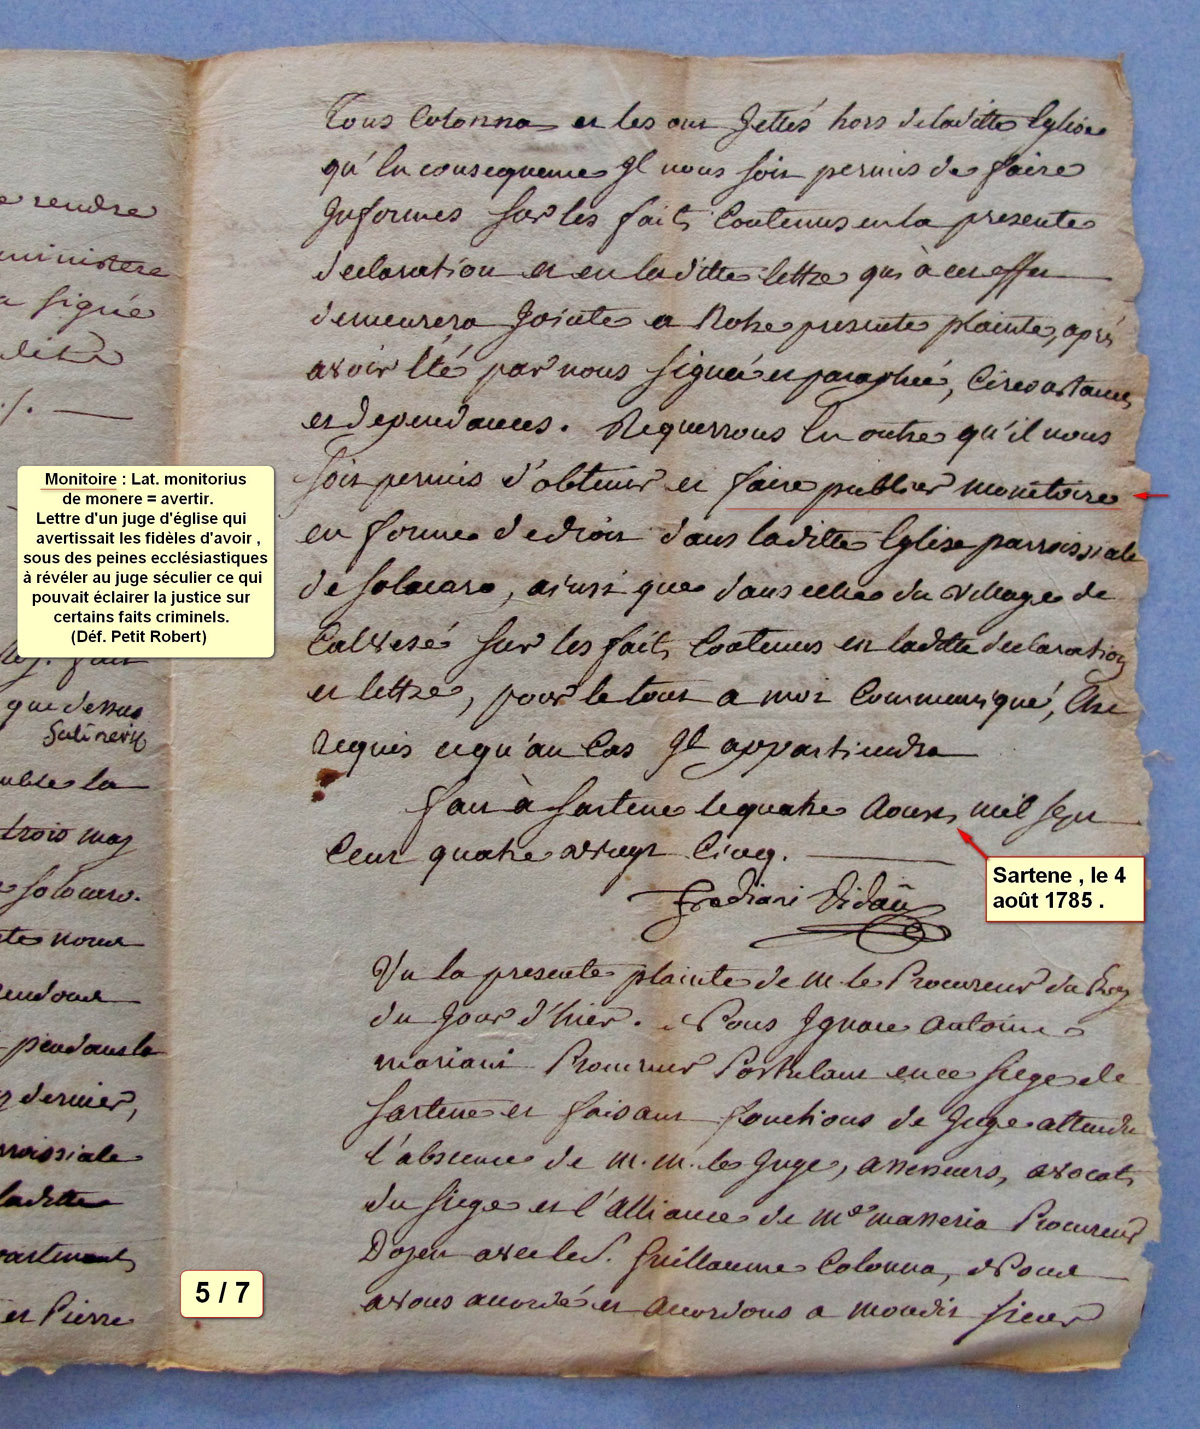 e rendre
ministere
a signé
ledit
./.
que dessus
Susinerix
emble la
trois may
Solacaro.
te nous
rendons
pendans la
dernier,
arroissiale
laditte
partiennent
et Pierre
Monitoire : Lat. monitorius
de monere = avertir.
Lettre d'un juge d'église qui
avertissait les fidèles d'avoir ,
sous des peines ecclésiastiques
à révéler au juge séculier ce qui
pouvait éclairer la justice sur
certains faits criminels.
(Déf. Petit Robert)
5 / 7
Tous Colonna et les ont Jettés hors de laditte Eglise
qu'En consequence Jl nous soit permis de faire
Jnformer sur les faits Contenus en la presente
declaration et en laditte lettre qui à cet effet
demeurera Jointe a Notre presente plainte, aprés
avoir Eté par nous signée et paraphée, Circonstances
et dependances. Requerrons En outre qu'il nous
soit permis d'obtenir et faire publier monitoire
en forme de droit dans laditte Eglise parroissiale
de Solacaro, ainsi que dans celle du village de
Calvesé sur les faits Contenus en laditte declaration
et lettre, pour le tout a moi Communiqué, Etre
requis ce qu'au Cas Jl appartiendra
fait à Sartene le quatre Aoust mil sept
Cent quatre vingt Cinq.
Frediani Vidaü
Sartene , le 4
août 1785 .
Vu la presente plainte de M. le Procureur du Roy
du Jour d'hier. Nous Jgnace Antoine
Mariani Procureur Postulant en ce Siege de
Sartene et faisant fonctions de Juge attendu
l'absence de M. M. le Juge, assesseurs, avocats
du Siege et l'alliance de Me Masseria Procureur
Doyen avec le S. Guillaume Colonna, Nous
avons accordé et accordons a mondit sieur